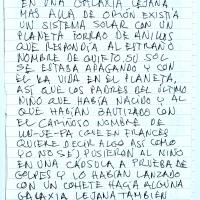 EN UNA GALAXIA LEJANA
MÁS ALLÁ DE ORIÓN EXISTÍA
UN SISTEMA SOLAR CON UN
PLANETA FORRAO DE ANILLOS
QUE RESPONDÍA AL EXTRAÑO
NOMBRE DE QUIETO. SU SOL
SE ESTABA APAGANDO Y CON
ÉL LA VIDA EN EL PLANETA,
ASÍ QUE LOS PADRES DEL ÚLTIMO
NIÑO QUE HABÍA NACIDO Y AL
QUE HABÍAN BAUTIZADO CON
EL CARIÑOSO NOMBRE DE
(QUE EN FRANCÉS
QUIERE DECIR ALGO ASÍ COMO
YO NO SÉ) PUSIERON AL NIÑO
EN UNA CÁPSULA A PRUEBA DE
GOLPES Y LO HABÍAN LANZADO
CON UN COHETE HACIA ALGUNA
GALAXIA LEJANA TAMBIÉN